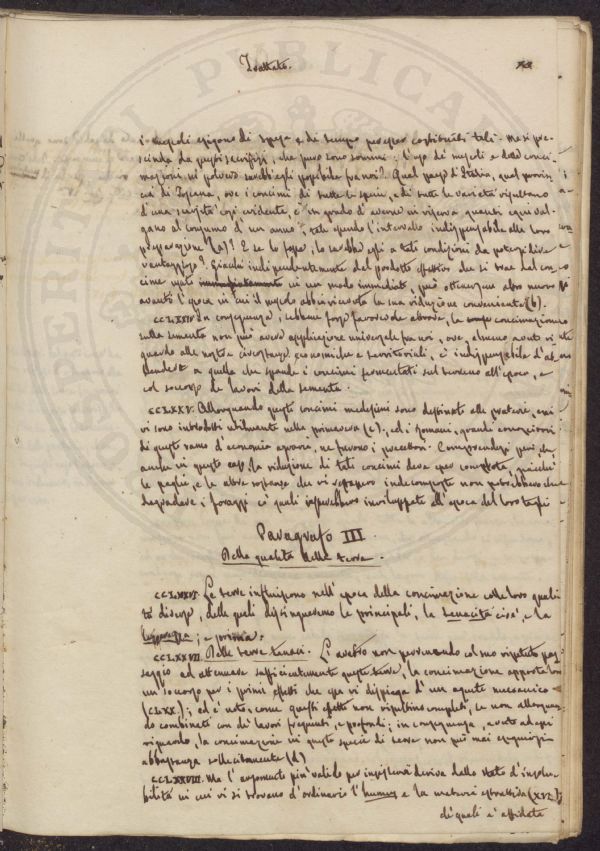 Trattato.
i migoli esigono di spesa e di tempo per esser costituiti tali. Ma si pre-
scinda da questi sacrifizj, che pure sono sommi: l'uso dei migoli e delle conci-
mazioni in polvere sarebb'egli possibile fra noi? Qual paese d'Italia, qual provin-
cia di Toscana, ove i concimi di tutte le specie, e di tutte le varietà risultano
d'una scarsità così evidente, è in grado d'averne in riserva quanti equival-
gano al consumo d'un anno, tale essendo l'intervallo indispensabile alla loro
preparazione (a)? E se lo fosse, lo sarebbe egli a tali condizioni da potersi dire
vantaggioso? Giacchè indipendentemente dal prodotto effettivo che si trae dal con-
cime usato in un modo immediato, può ottenersene altro nuovo
avanti l'epoca in cui il migolo abbia ricevuto la sua riduzione conveniente (b).
CCLXXIV. In conseguenza, sebbene forse favorevole altrove, la concimazione
sulla sementa non può avere applicazione universale fra noi, ove, almeno avuto ri-
guardo alle nostre circostanze economiche e territoriali, è indispensabile d'at-
tenersi a quella che spande i concimi fermentati sul terreno all'epoca, e
col soccorso de' lavori della sementa.
CCLXXV. Allorquando questi concimi medesimi sono destinati alle praterie, essi
vi sono introdotti utilmente nella primavera (c), ed i Romani, grandi conoscitori
di questo ramo d'economia agraria, ne furono i precettori. Comprendesi però che
anche in questo caso, la riduzione di tali concimi deve esser completa, giacchè
le paglie, e le altre sostanze che vi restassero indecomposte non potrebbero che
degradare i foraggi co' quali resterebbero inviluppate all'epoca del loro taglio.
Paragrafo III.
Della qualità delle terre.
CCLXXVI. Le terre influiscono nell'epoca della concimazione colle loro quali-
tà diverse, delle quali distingueremo le principali, la tenacità cioè, e la
leggerezza; e prima.
CCLXXVII. Delle terre tenaci. L'aratro non pervenendo col suo ripetuto pas-
saggio ad attenuare sufficientemente queste terre, la concimazione apporta loro
un soccorso per i primi effetti che essa vi dispiega d'un agente meccanico
(CCLXX.); ed è noto, come questi effetti non risultino completi, se non allorquan-
do combinati con de' lavori frequenti, e profondi; in conseguenza, avuto ad essi
riguardo, la concimazione in queste specie di terre non può mai eseguirsi
abbastanza sollecitamente (d)
CCLXXVIII. Ma l'argomento più valido per insistervi deriva dallo stato d'insolu-
bilità in cui vi si trovano d'ordinario l'humus e la materia estrattiva (XVI.),
di quali è affidata